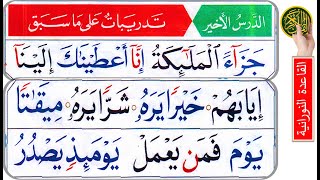 الدرس الأخير
تدريبات على ما سبق
جَزَآءً الْمَلٰٓئِكَةُ إِنَّآ أَعْطَيْنٰكَ إِلَيْنَآ
إِيَابَهُمْ خَيْرًا يَرَهُ شَرًّا يَرَهُ مِيقَٰتًا
يَوْمَ فَمَن يَعْمَلْ يَوْمَئِذٍ يَصْدُرُ
القاعدة النورانية